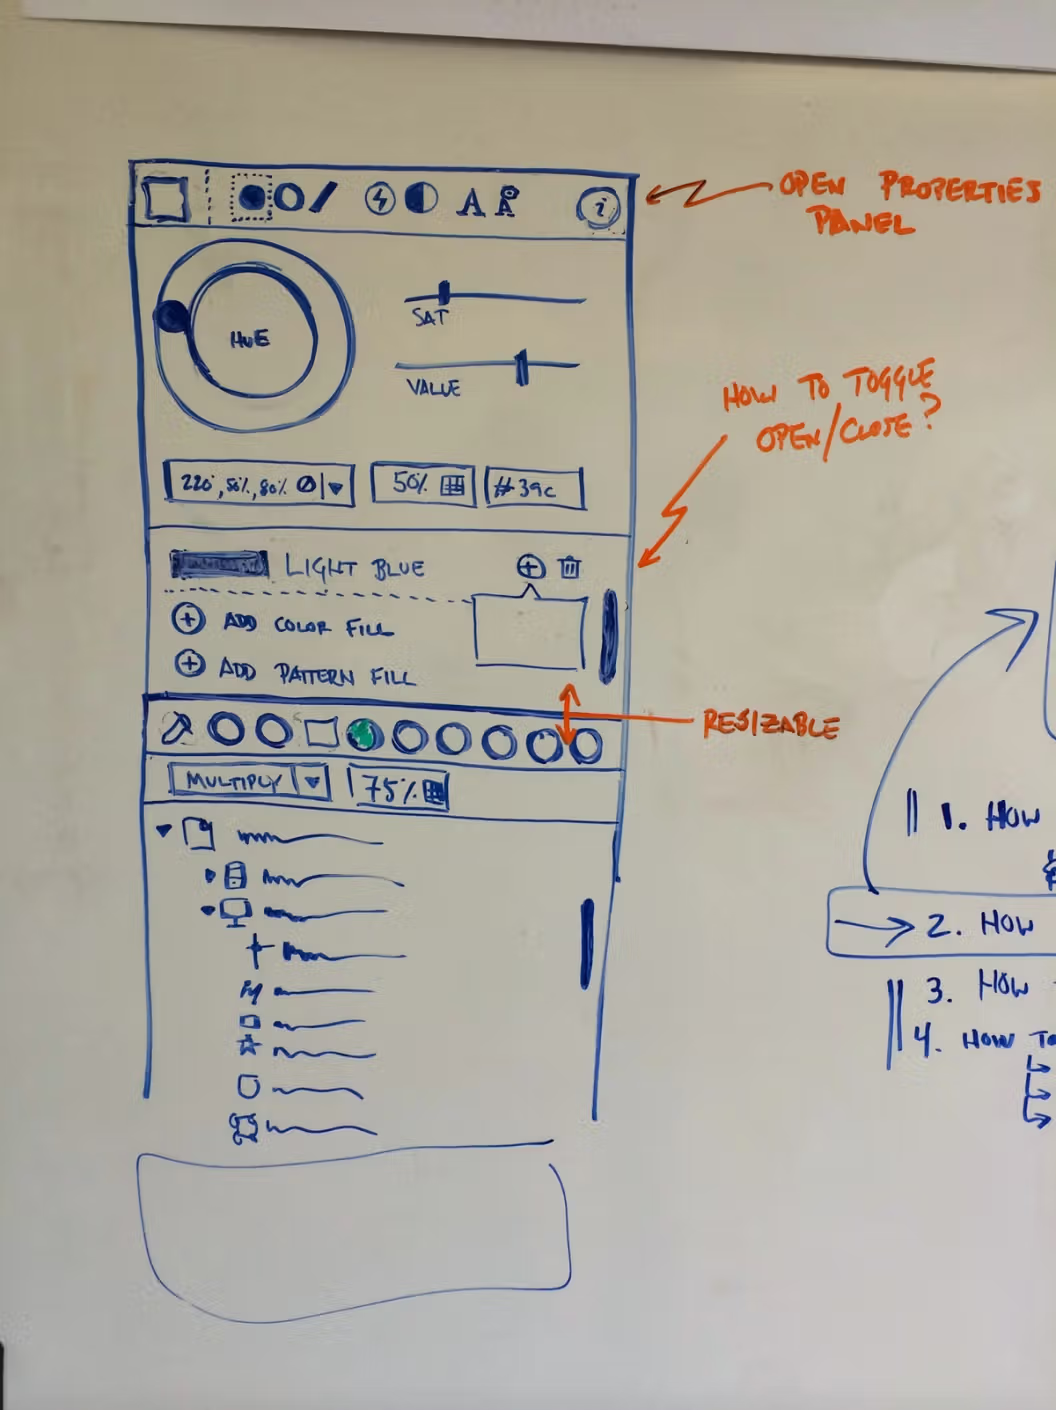 A A i
OPEN PROPERTIES
PANEL
HUE
SAT
VALUE
HOW TO TOGGLE
OPEN/CLOSE?
220°, 50%, 80%
50%
#39c
LIGHT BLUE
ADD COLOR FILL
ADD PATTERN FILL
RESIZABLE
MULTIPLY
75%
1. HOW
2. HOW
3. HOW
4. HOW TO